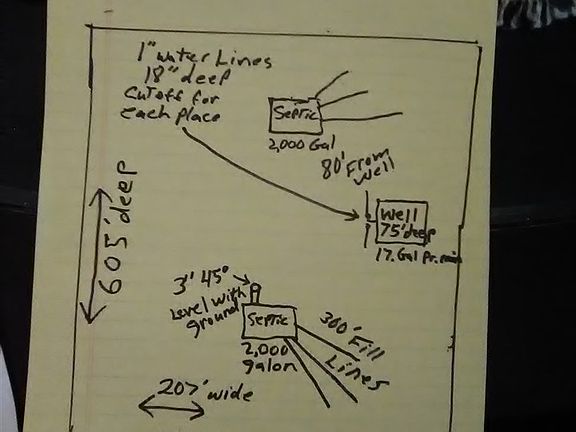 1" water Lines
18" deep
cutoff for
each place
Septic
2,000 Gal
80' From
well
well
75' deep
17. Gal Pr. min
605' deep
3" 45°
Level with
ground
Septic
2,000
galon
300' Fill
Lines
207' wide